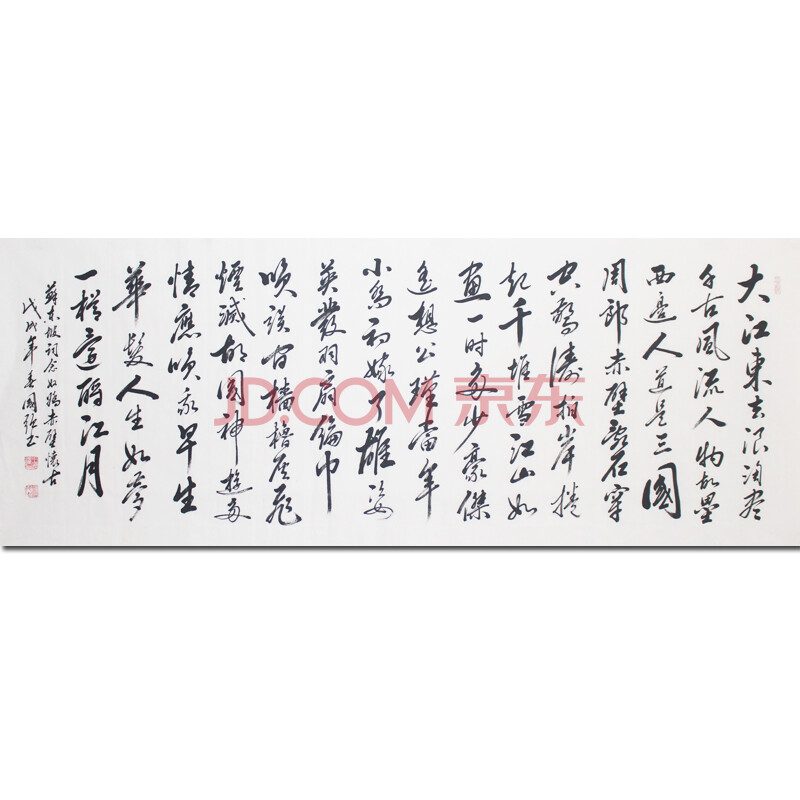 大江東去浪淘尽
千古風流人物故壘
西邊人道是三國
周郎赤壁亂石穿
空驚濤拍岸捲
起千堆雪江山如
畫一时多少豪傑
遙想公瑾當年
小喬初嫁了雄姿
英發羽扇綸巾
笑談间檣櫓灰飛
煙滅故国神遊多
情應笑我早生
華髮人生如夢
一樽還酹江月
蘇東坡詞念奴嬌赤壁懷古
戊戌年春國强书
JD.COM 京东